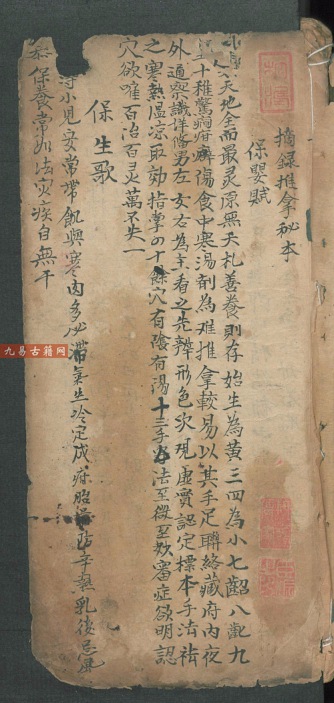 摘録推拿秘本
保嬰賦
人 天地全而最灵原無夭札善養則存始生為黃三四為小七齠八齔九
十稚驚癇疳癖傷食中寒湯剤為难推拿較易以其手足聯絡藏府内夜
外通察識詳俻男左女右為主看之先辨形色次現虚實認定標本手法祛
之寒熱温凉取効指掌四十餘穴有陰有湯十三手法至微至妙審症欲明認
穴欲確百治百灵萬不失一
保生歌
小児安常帶飢與寒肉多必滯氣生冷定成疳胎前防辛熱乳後忌風
保養常如法灾疾自無干
九易古籍网